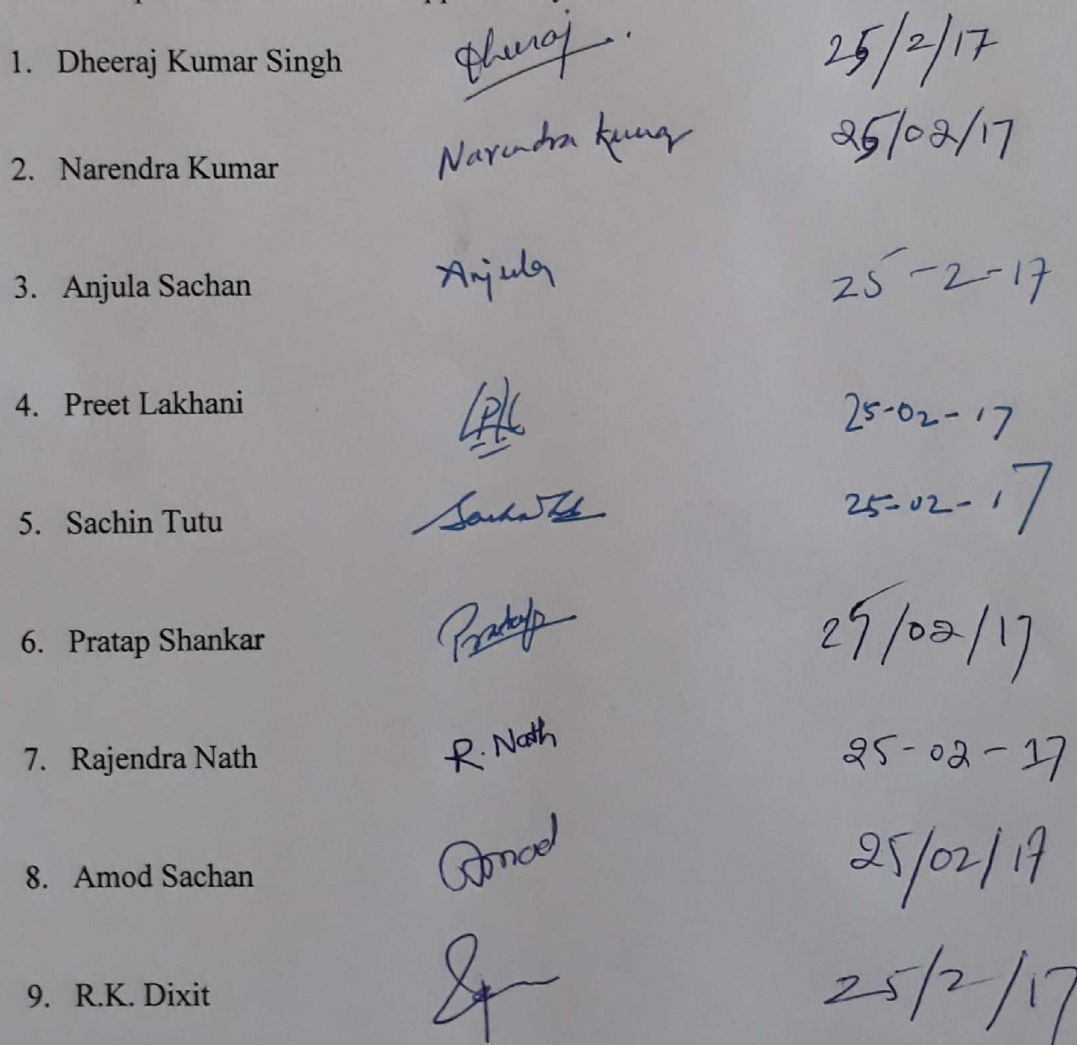 1. Dheeraj Kumar Singh Dheeraj 25/2/17
2. Narendra Kumar Narendra Kumar 25/02/17
3. Anjula Sachan Anjula 25-2-17
4. Preet Lakhani 25-02-17
5. Sachin Tutu 25-02-17
6. Pratap Shankar Pratap 25/02/17
7. Rajendra Nath R. Nath 25-02-17
8. Amod Sachan Amod 25/02/17
9. R.K. Dixit 25/2/17